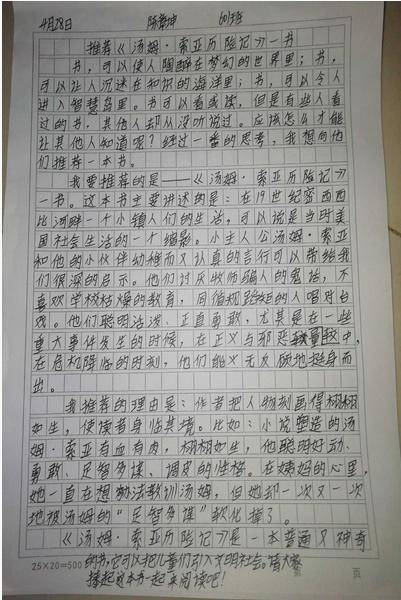 4月28日 陈 坤 601班
推荐《汤姆·索亚历险记》一书
书,可以使人陶醉在梦幻的世界里;书,
可以让人沉迷在知识的海洋里;书,可以令人
进入智慧岛里。书可以看或读,但是有些人看
过的书,其他人却从没听说过。应该怎么才能
让其他人知道呢?经过一番的思考,我想向他
们推荐一本书。
我要推荐的是——《汤姆·索亚历险记》
一书。这本书主要讲述的是:在19世纪密西西
比河畔一个小镇人们的生活,可以说是当时美
国社会生活的一个缩影。小主人公汤姆·索亚
和他的小伙伴幼稚而又认真的言行可以带给我
们很深的启示。他们讨厌牧师骗人的鬼话,不
喜欢学校枯燥的教育,同循规蹈矩的人唱对台
戏。他们聪明活泼、正直勇敢,尤其是在一些
重大事件发生的时候,在正义与邪恶较量中,
在危机降临的时刻,他们能义无反顾地挺身而
出。
我推荐的理由是:作者把人物刻画得栩栩
如生,使读者身临其境。比如:小说塑造的汤
姆·索亚有血有肉,栩栩如生,他聪明好动、
勇敢、足智多谋、调皮的性格。在姨妈的心里,
她一直在想办法教训汤姆,但她却一次又一次
地被汤姆的“足智多谋”软化掉了。
《汤姆·索亚历险记》是一本普通又神奇
的书,它可以把儿童们引入文明社会。请大家
捧起这本书一起来阅读吧!
25×20=500 页